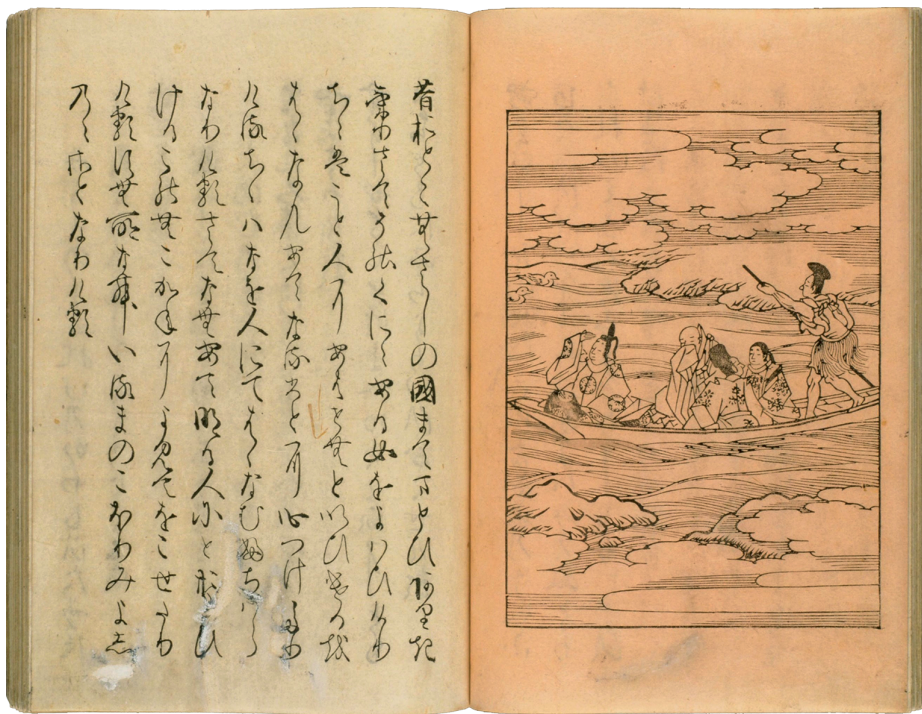 昔おとこむさしの國まてまとひありき
けりさてそのくにゝある女をよはひけり
ちゝはこと人にあはせむといひけるを
はゝなんあてなるひとに心つけたり
けるちゝハなを人にてはゝなむふちハら
なりけるさてなむあてなる人にとおもひ
けるこのむこかねによみてをこせたり
けるすむ所なむいるまのこほりみよし
のゝさとなりける